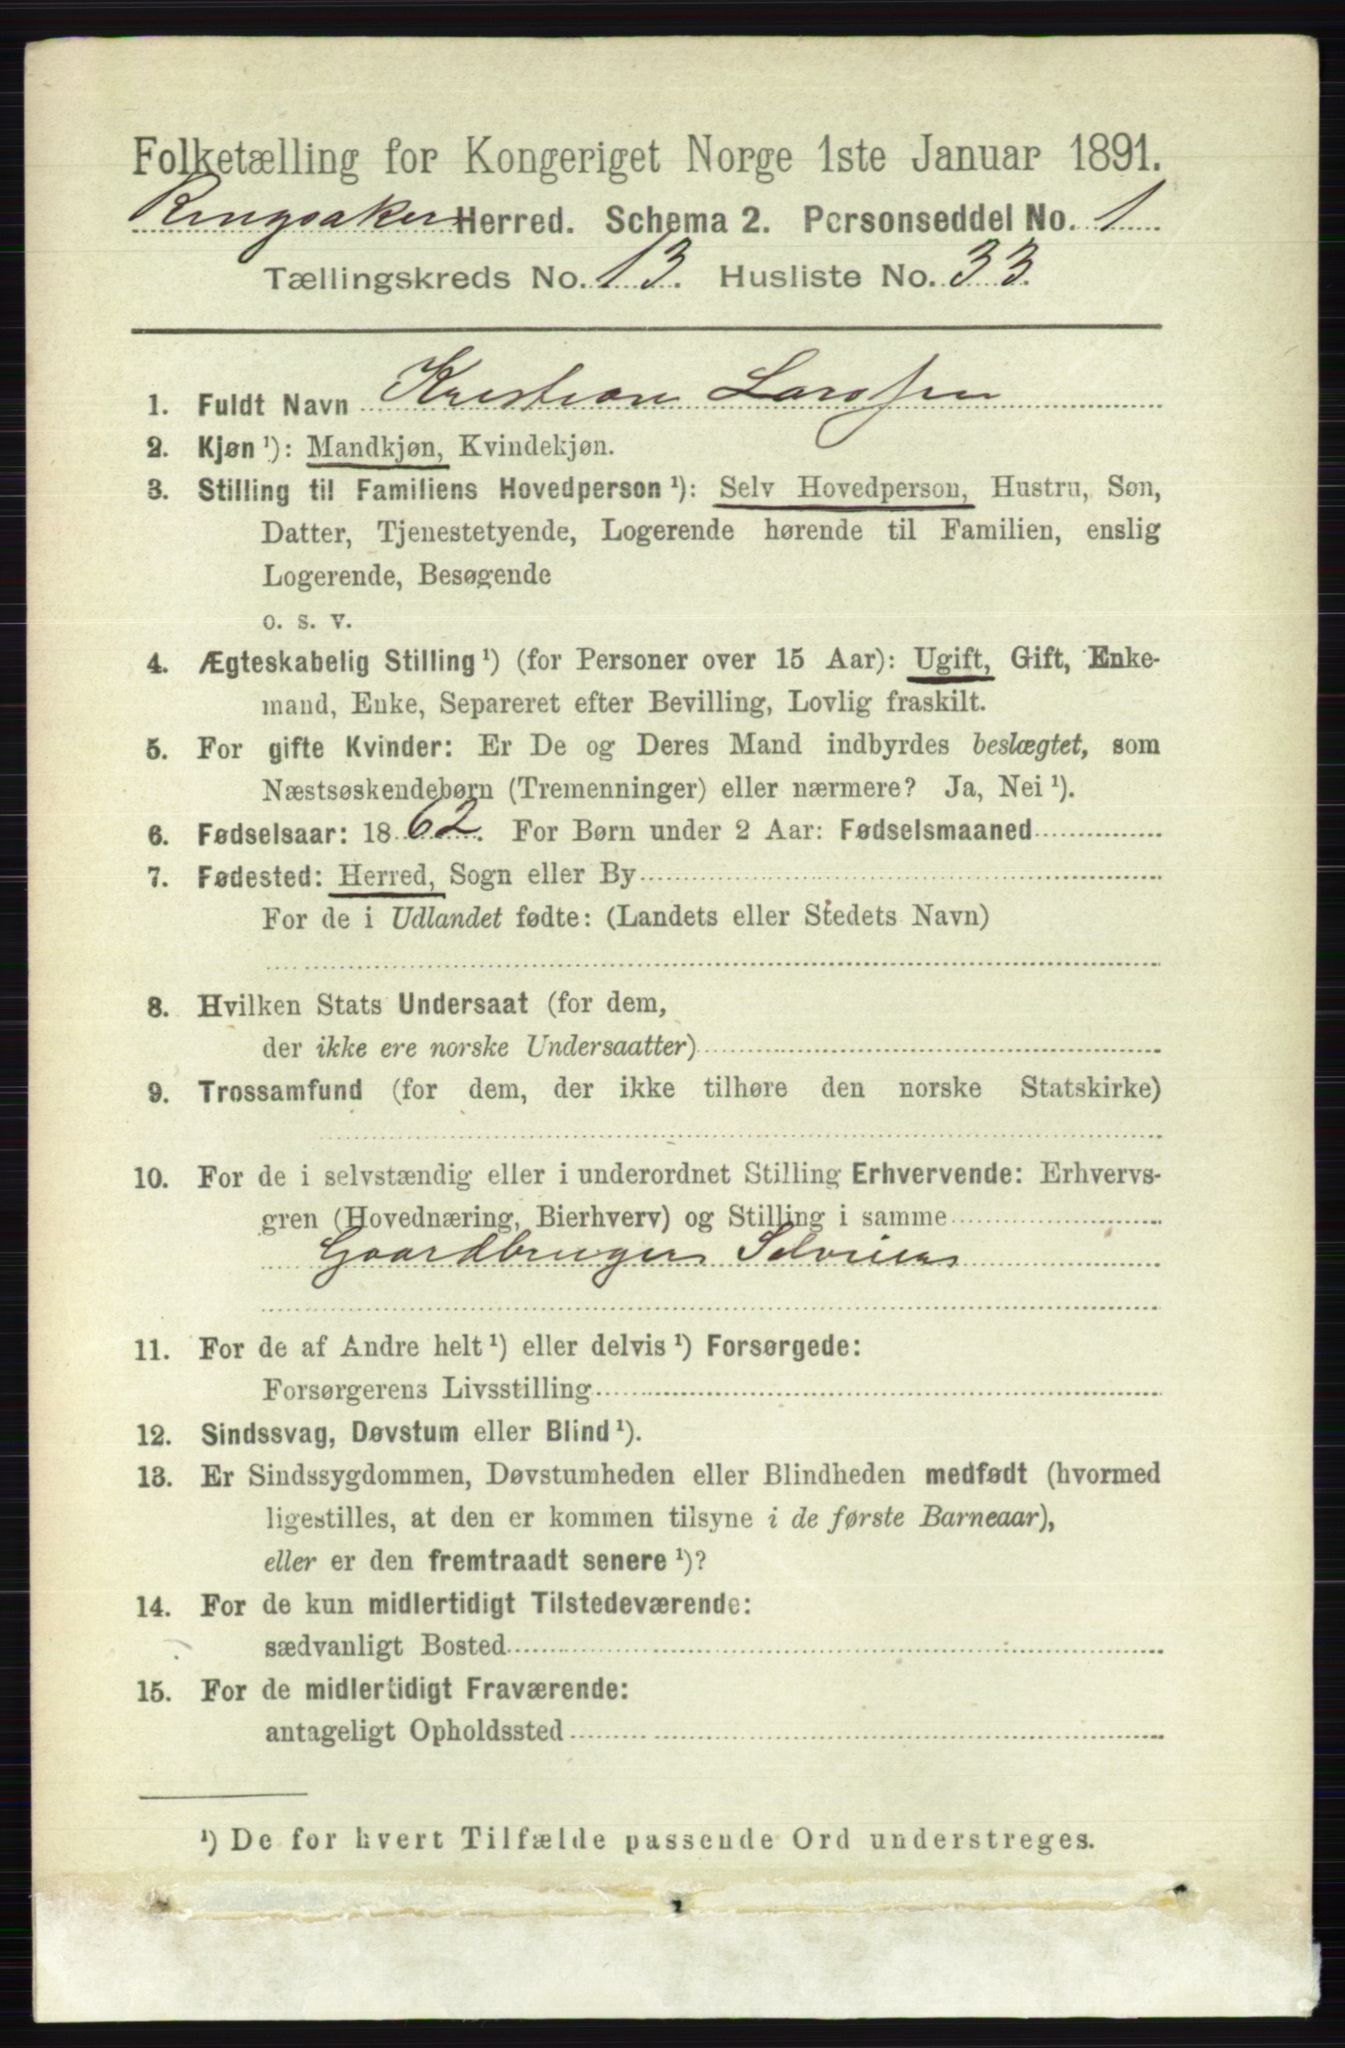 Folketælling for Kongeriget Norge 1ste Januar 1891.
Ringsaker Herred. Schema 2. Personseddel No. 1
Tællingskreds No. 13. Husliste No. 33.
1. Fuldt Navn Kristian Larssen
2. Kjøn ¹): Mandkjøn, Kvindekjøn.
3. Stilling til Familiens Hovedperson ¹): Selv Hovedperson, Hustru, Søn,
Datter, Tjenestetyende, Logerende hørende til Familien, enslig
Logerende, Besøgende
o. s. v.
4. Ægteskabelig Stilling ¹) (for Personer over 15 Aar): Ugift, Gift, Enke-
mand, Enke, Separeret efter Bevilling, Lovlig fraskilt.
5. For gifte Kvinder: Er De og Deres Mand indbyrdes beslægtet, som
Næstsøskendebørn (Tremenninger) eller nærmere? Ja, Nei ¹).
6. Fødselsaar: 1862. For Børn under 2 Aar: Fødselsmaaned
7. Fødested: Herred, Sogn eller By
For de i Udlandet fødte: (Landets eller Stedets Navn)
8. Hvilken Stats Undersaat (for dem,
der ikke ere norske Undersaatter)
9. Trossamfund (for dem, der ikke tilhøre den norske Statskirke)
10. For de i selvstændig eller i underordnet Stilling Erhvervende: Erhvervs-
gren (Hovednæring, Bierhverv) og Stilling i samme
Gaardbruger Selveier
11. For de af Andre helt ¹) eller delvis ¹) Forsørgede:
Forsørgerens Livsstilling
12. Sindssvag, Døvstum eller Blind ¹).
13. Er Sindssygdommen, Døvstumheden eller Blindheden medfødt (hvormed
ligestilles, at den er kommen tilsyne i de første Barneaar),
eller er den fremtraadt senere ¹)?
14. For de kun midlertidigt Tilstedeværende:
sædvanligt Bosted
15. For de midlertidigt Fraværende:
antageligt Opholdssted
¹) De for hvert Tilfælde passende Ord understreges.